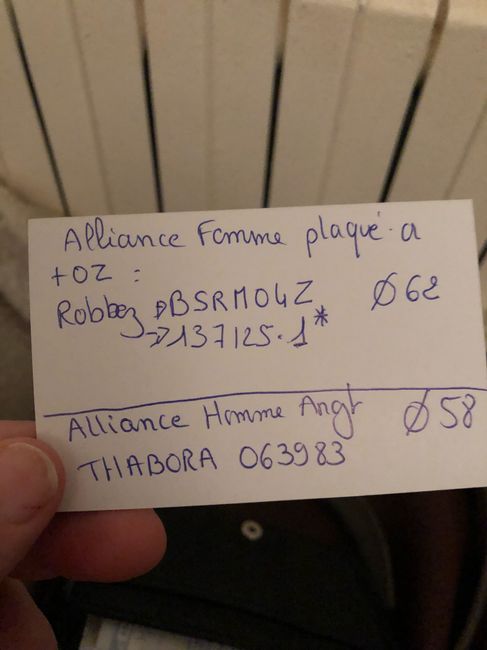 Alliance Femme plaqué a
+OZ :
Robbez →BSRM04Z Ø 62
→137125.1*
Alliance Homme Angt Ø 58
THABORA 063983